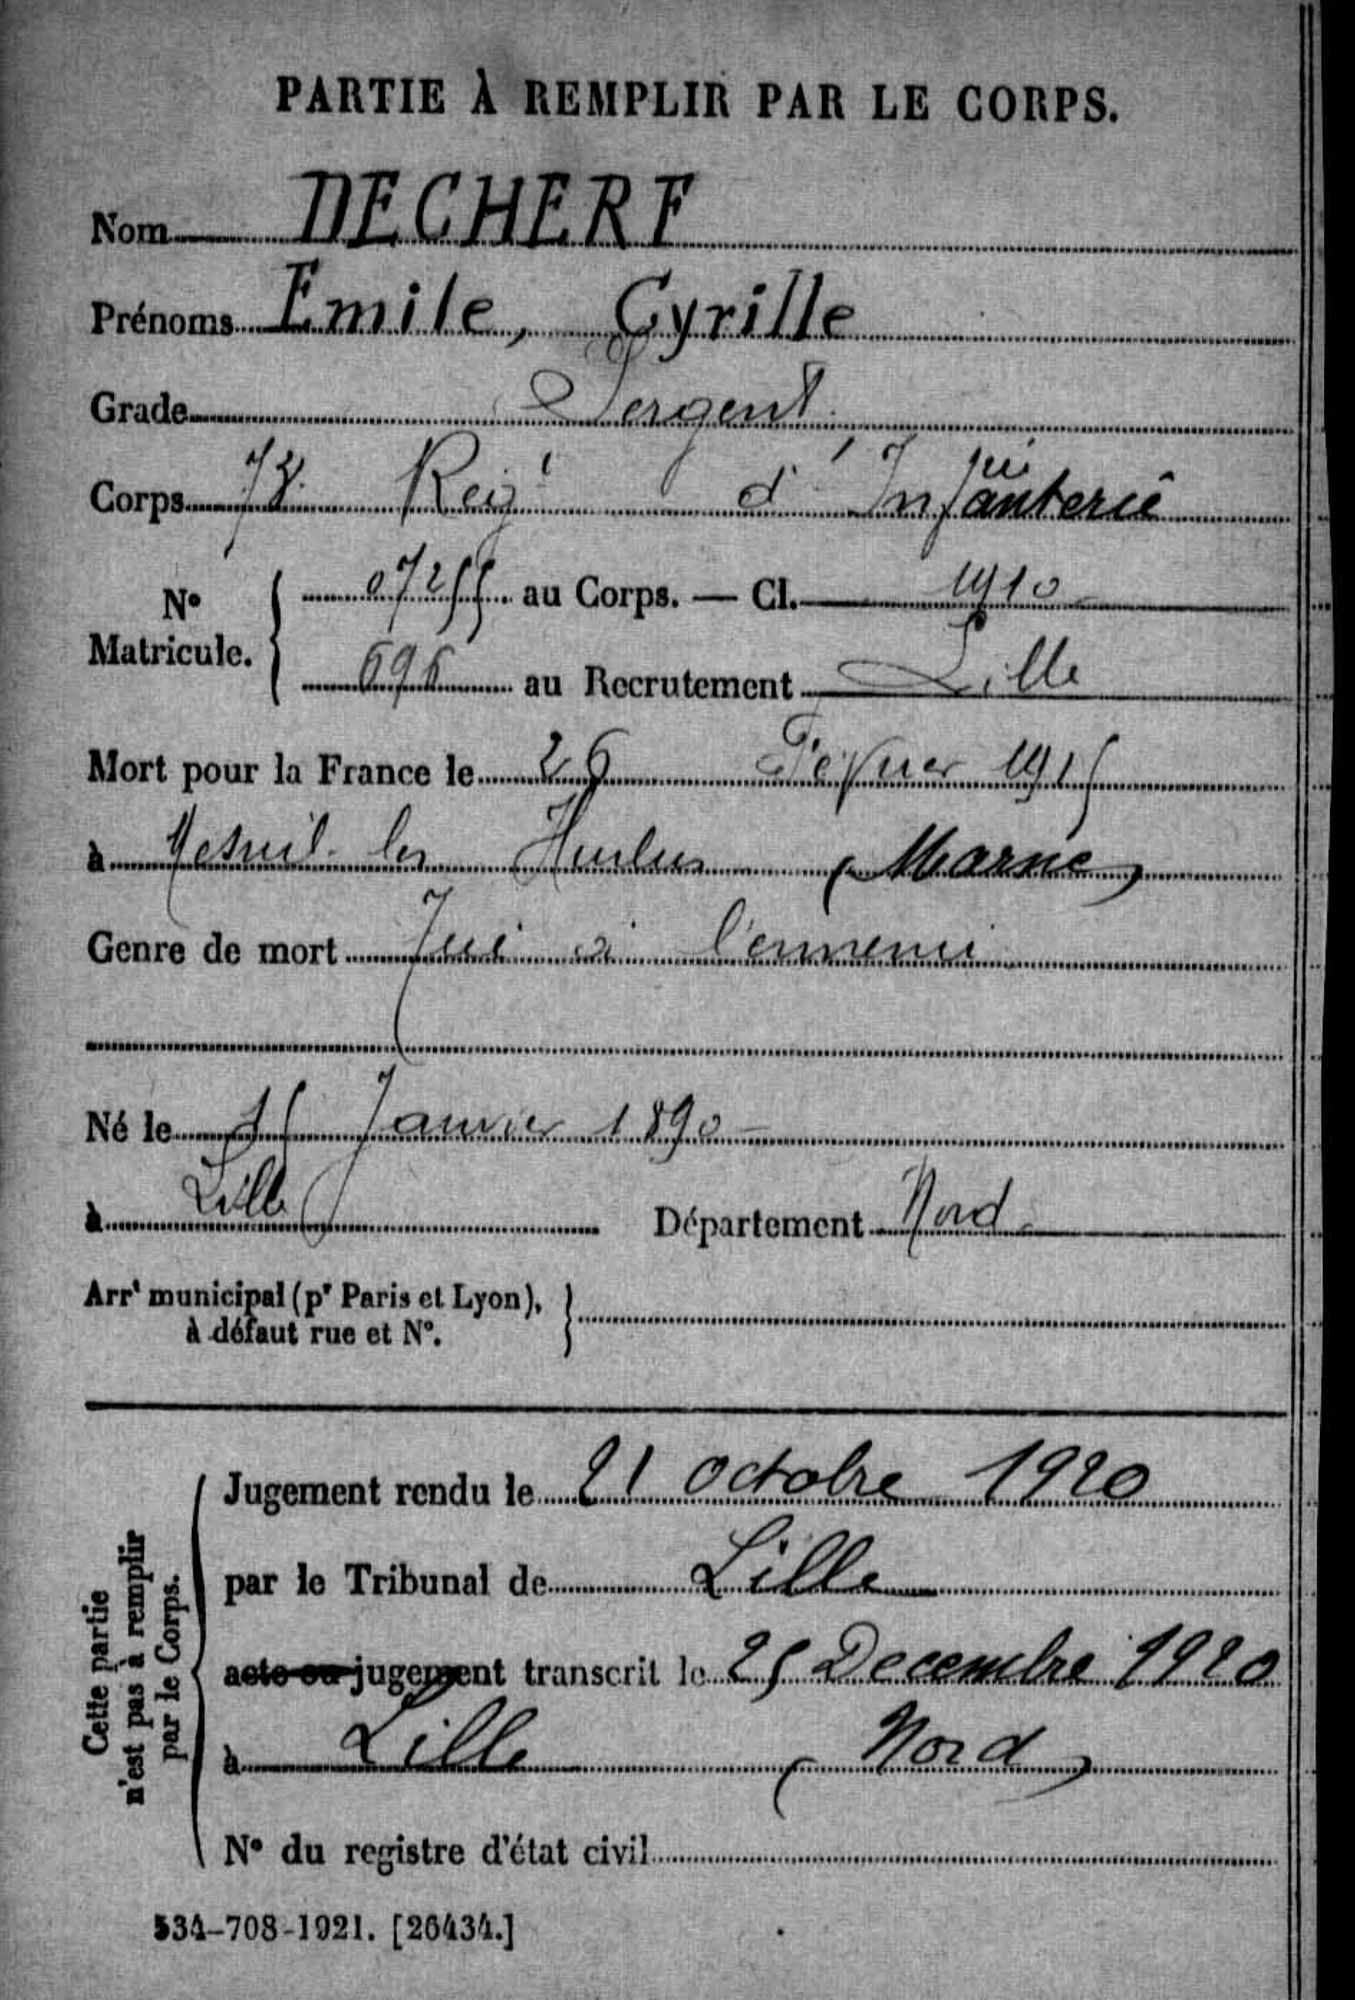 PARTIE À REMPLIR PAR LE CORPS.
Nom DECHERF
Prénoms Emile, Cyrille
Grade Sergent
Corps 78 Reg^t d'Infanterie
N° Matricule. { 07255 au Corps. — Cl. 1910
696 au Recrutement Lille
Mort pour la France le 26 Février 1915
à Mesnil les Hurlus (Marne)
Genre de mort Tué à l'ennemi
Né le 15 Janvier 1890
à Lille Département Nord
Arr^t municipal (p^r Paris et Lyon), à défaut rue et N°. }
Cette partie n'est pas à remplir par le Corps.
Jugement rendu le 21 octobre 1920
par le Tribunal de Lille
acte ou jugement transcrit le 25 Decembre 1920
à Lille (Nord)
N° du registre d'état civil
534-708-1921. [26434.]